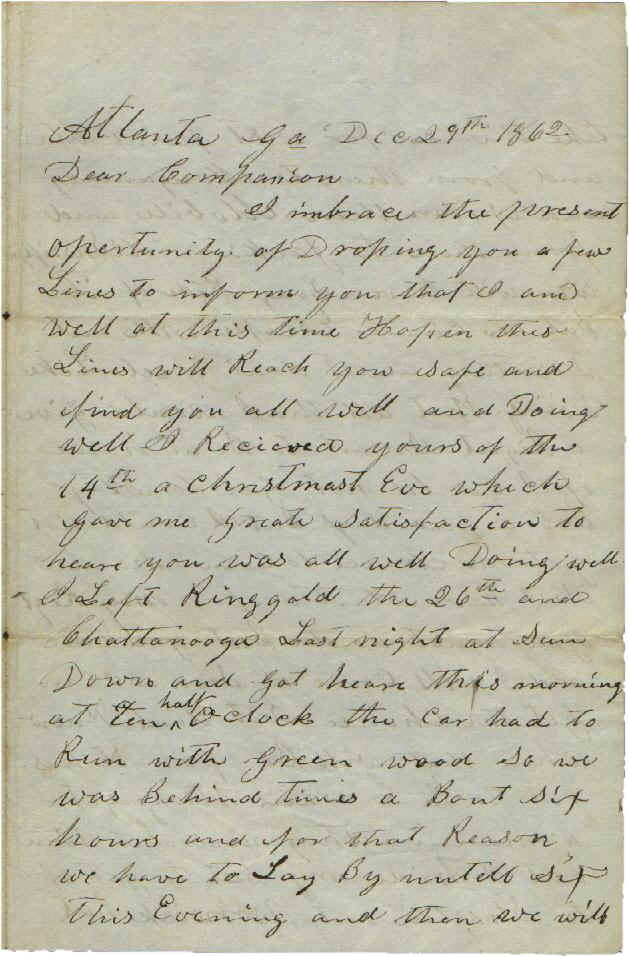 Atlanta Ga Dec 29th 1862
Dear Companion
I imbrace the present
opertunity of Droping you a few
Lines to inform you that I am
well at this time Hopen this
Lines will Reach you safe and
find you all well and Doing
well I Recieved yours of the
14th a Christmast Eve which
gave me great satisfaction to
heare you was all well Doing well
I Left Ringgold the 26th and
Chattanooga Last night at Sun
Down and got heare this morning
at ten half Oclock the Car had to
Run with Green wood so we
was Behind times a Bout six
hours and for that Reason
we have to Lay By untell six
this Evening and then we will